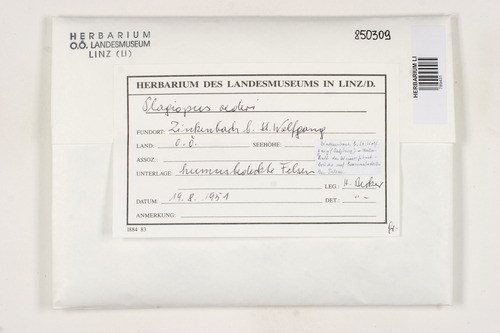 HERBARIUM
O.Ö. LANDESMUSEUM
LINZ (LI)
850309
HERBARIUM LI
HERBARIUM DES LANDESMUSEUMS IN LINZ/D.
Plagiopus oederi
FUNDORT: Zinkenbach b. St. Wolfgang
LAND: O.Ö. SEEHÖHE:
ASSOZ.:
UNTERLAGE: humusbedeckte Felsen
LEG.: H. Becker
DATUM: 19.8.1951 DET.: -"-
ANMERKUNG:
1884 83